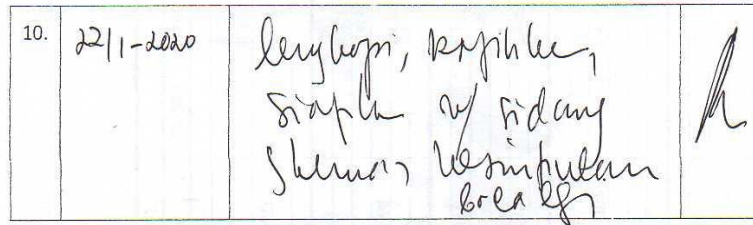 10. 22/1-2020 lengkapi, rapihkan,
siapkan u/ sidang
kesimpulan